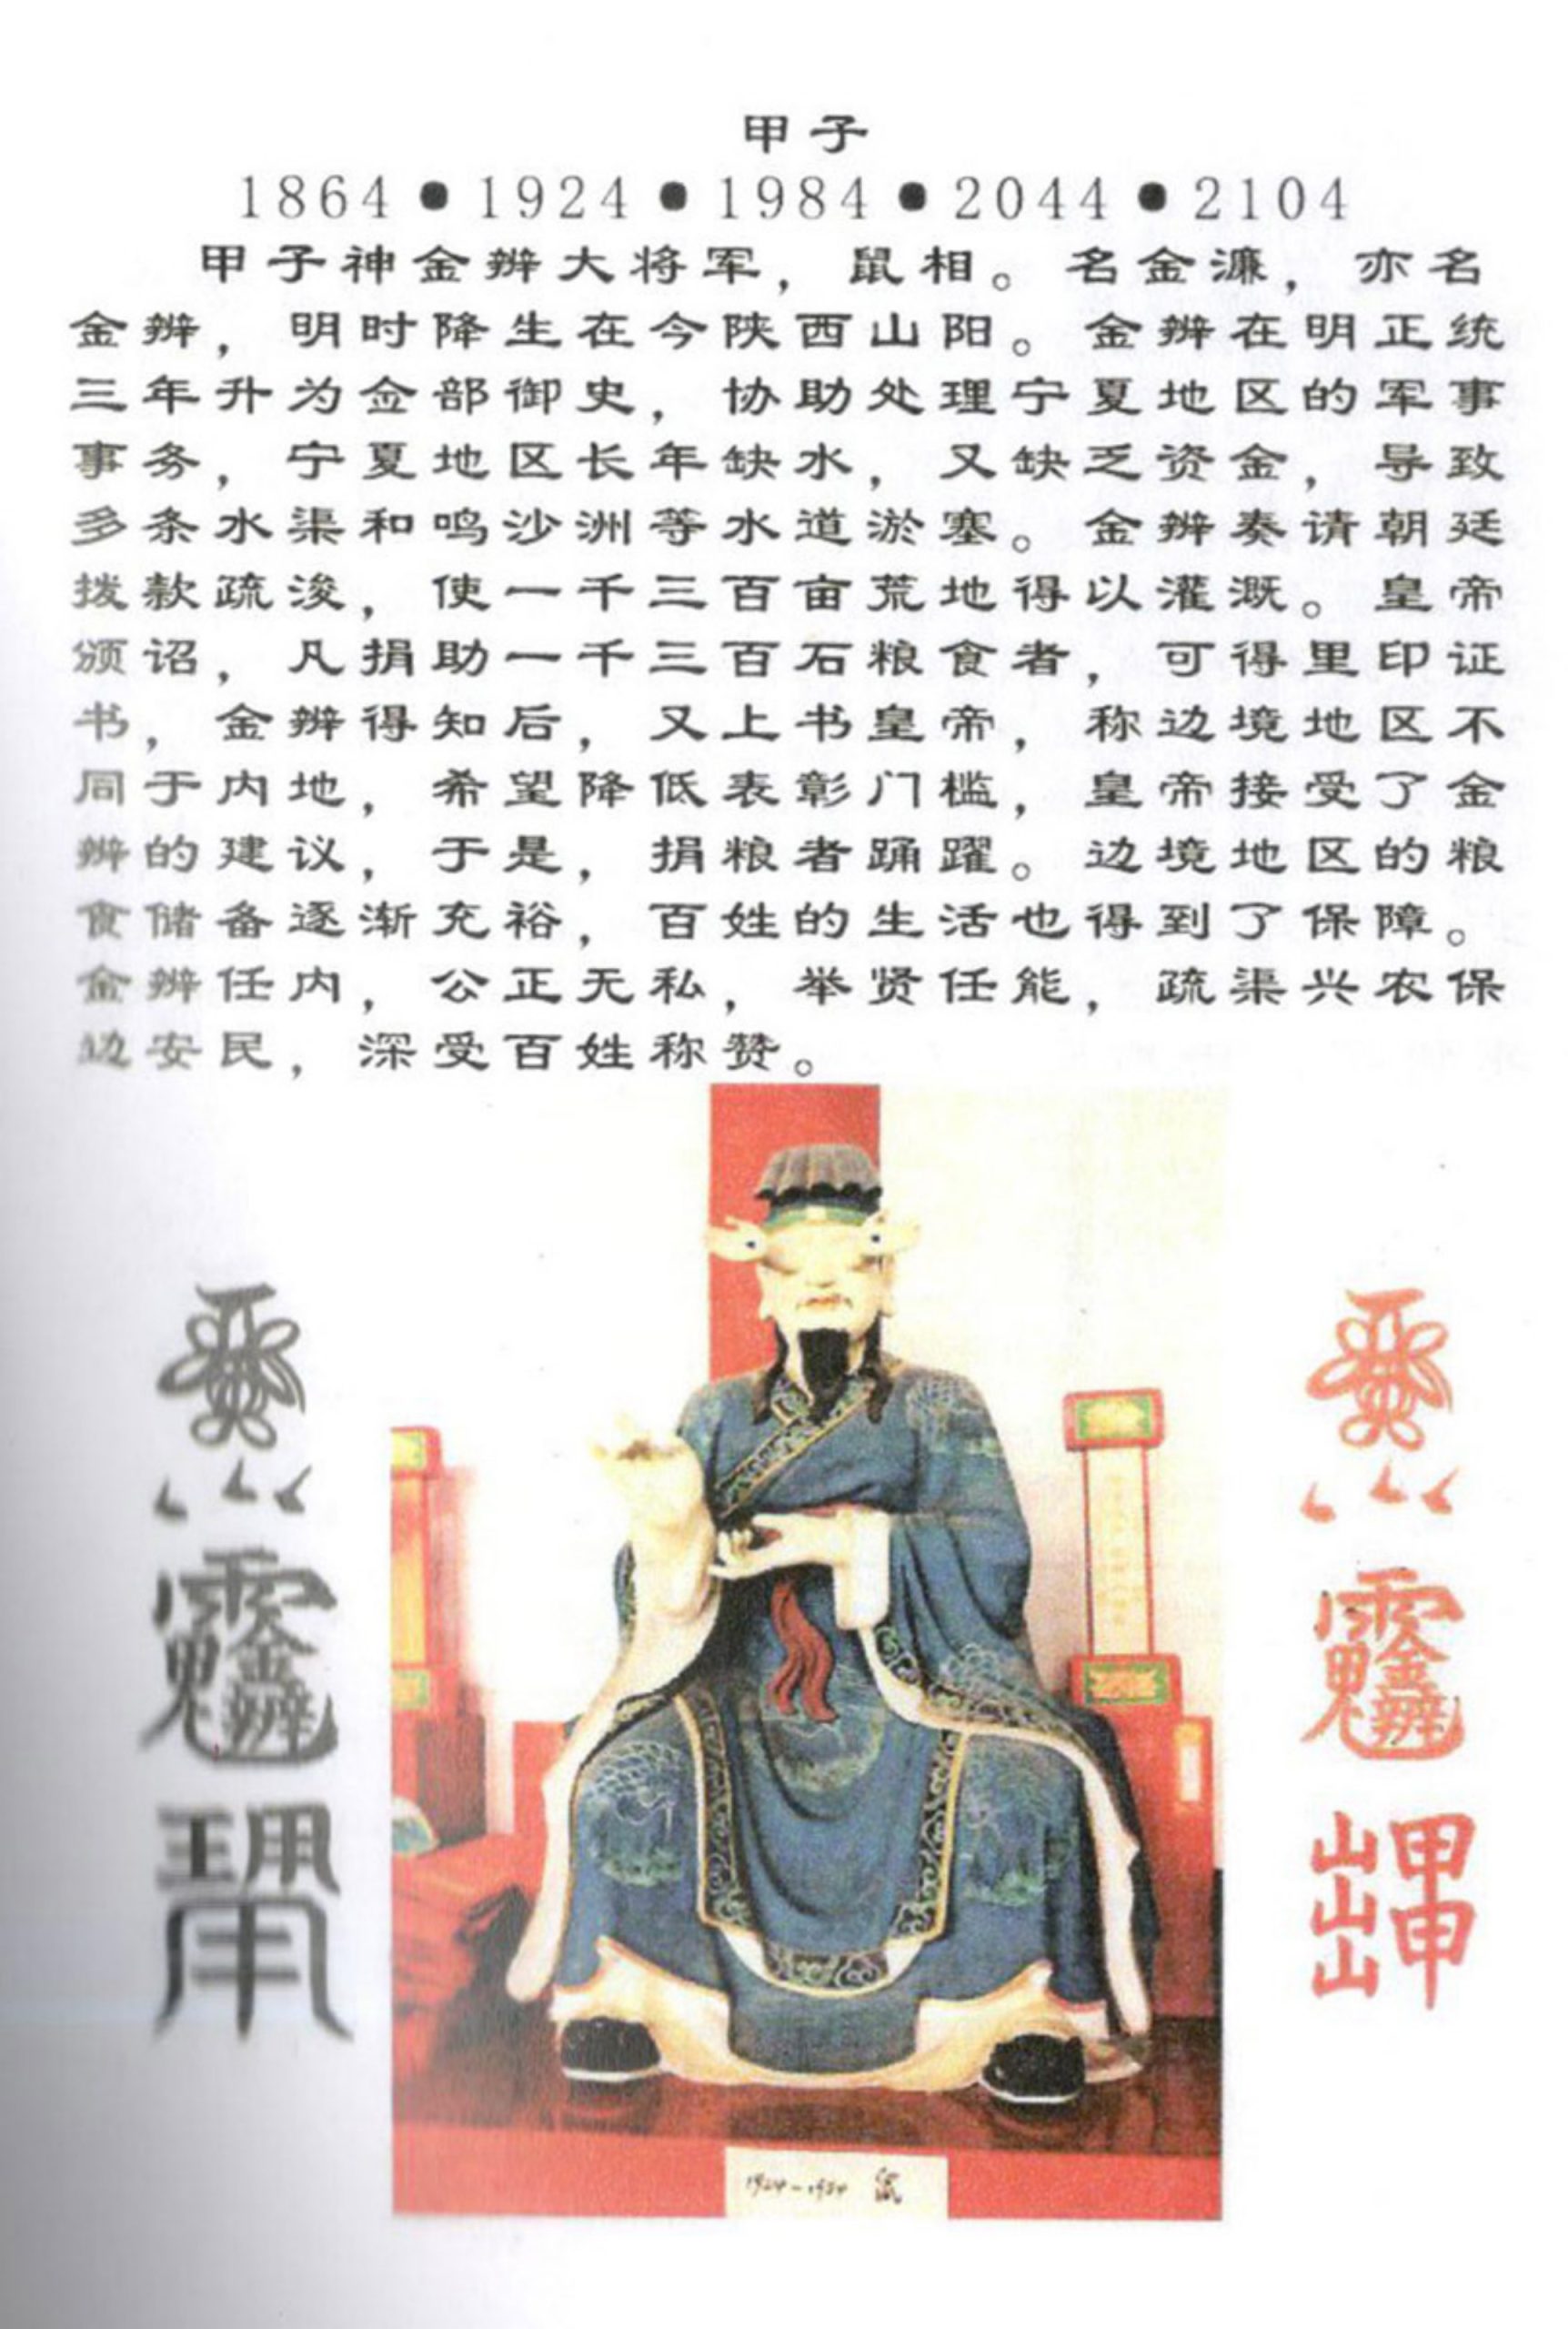 甲子
1864●1924●1984●2044●2104
甲子神金辨大将军，鼠相。名金濂，亦名
金辨，明时降生在今陕西山阳。金辨在明正统
三年升为佥部御史，协助处理宁夏地区的军事
事务，宁夏地区长年缺水，又缺乏资金，导致
多条水渠和鸣沙洲等水道淤塞。金辨奏请朝廷
拨款疏浚，使一千三百亩荒地得以灌溉。皇帝
颁诏，凡捐助一千三百石粮食者，可得里印证
书，金辨得知后，又上书皇帝，称边境地区不
同于内地，希望降低表彰门槛，皇帝接受了金
辨的建议，于是，捐粮者踊跃。边境地区的粮
食储备逐渐充裕，百姓的生活也得到了保障。
金辨任内，公正无私，举贤任能，疏渠兴农保
边安民，深受百姓称赞。
1924-1984 鼠